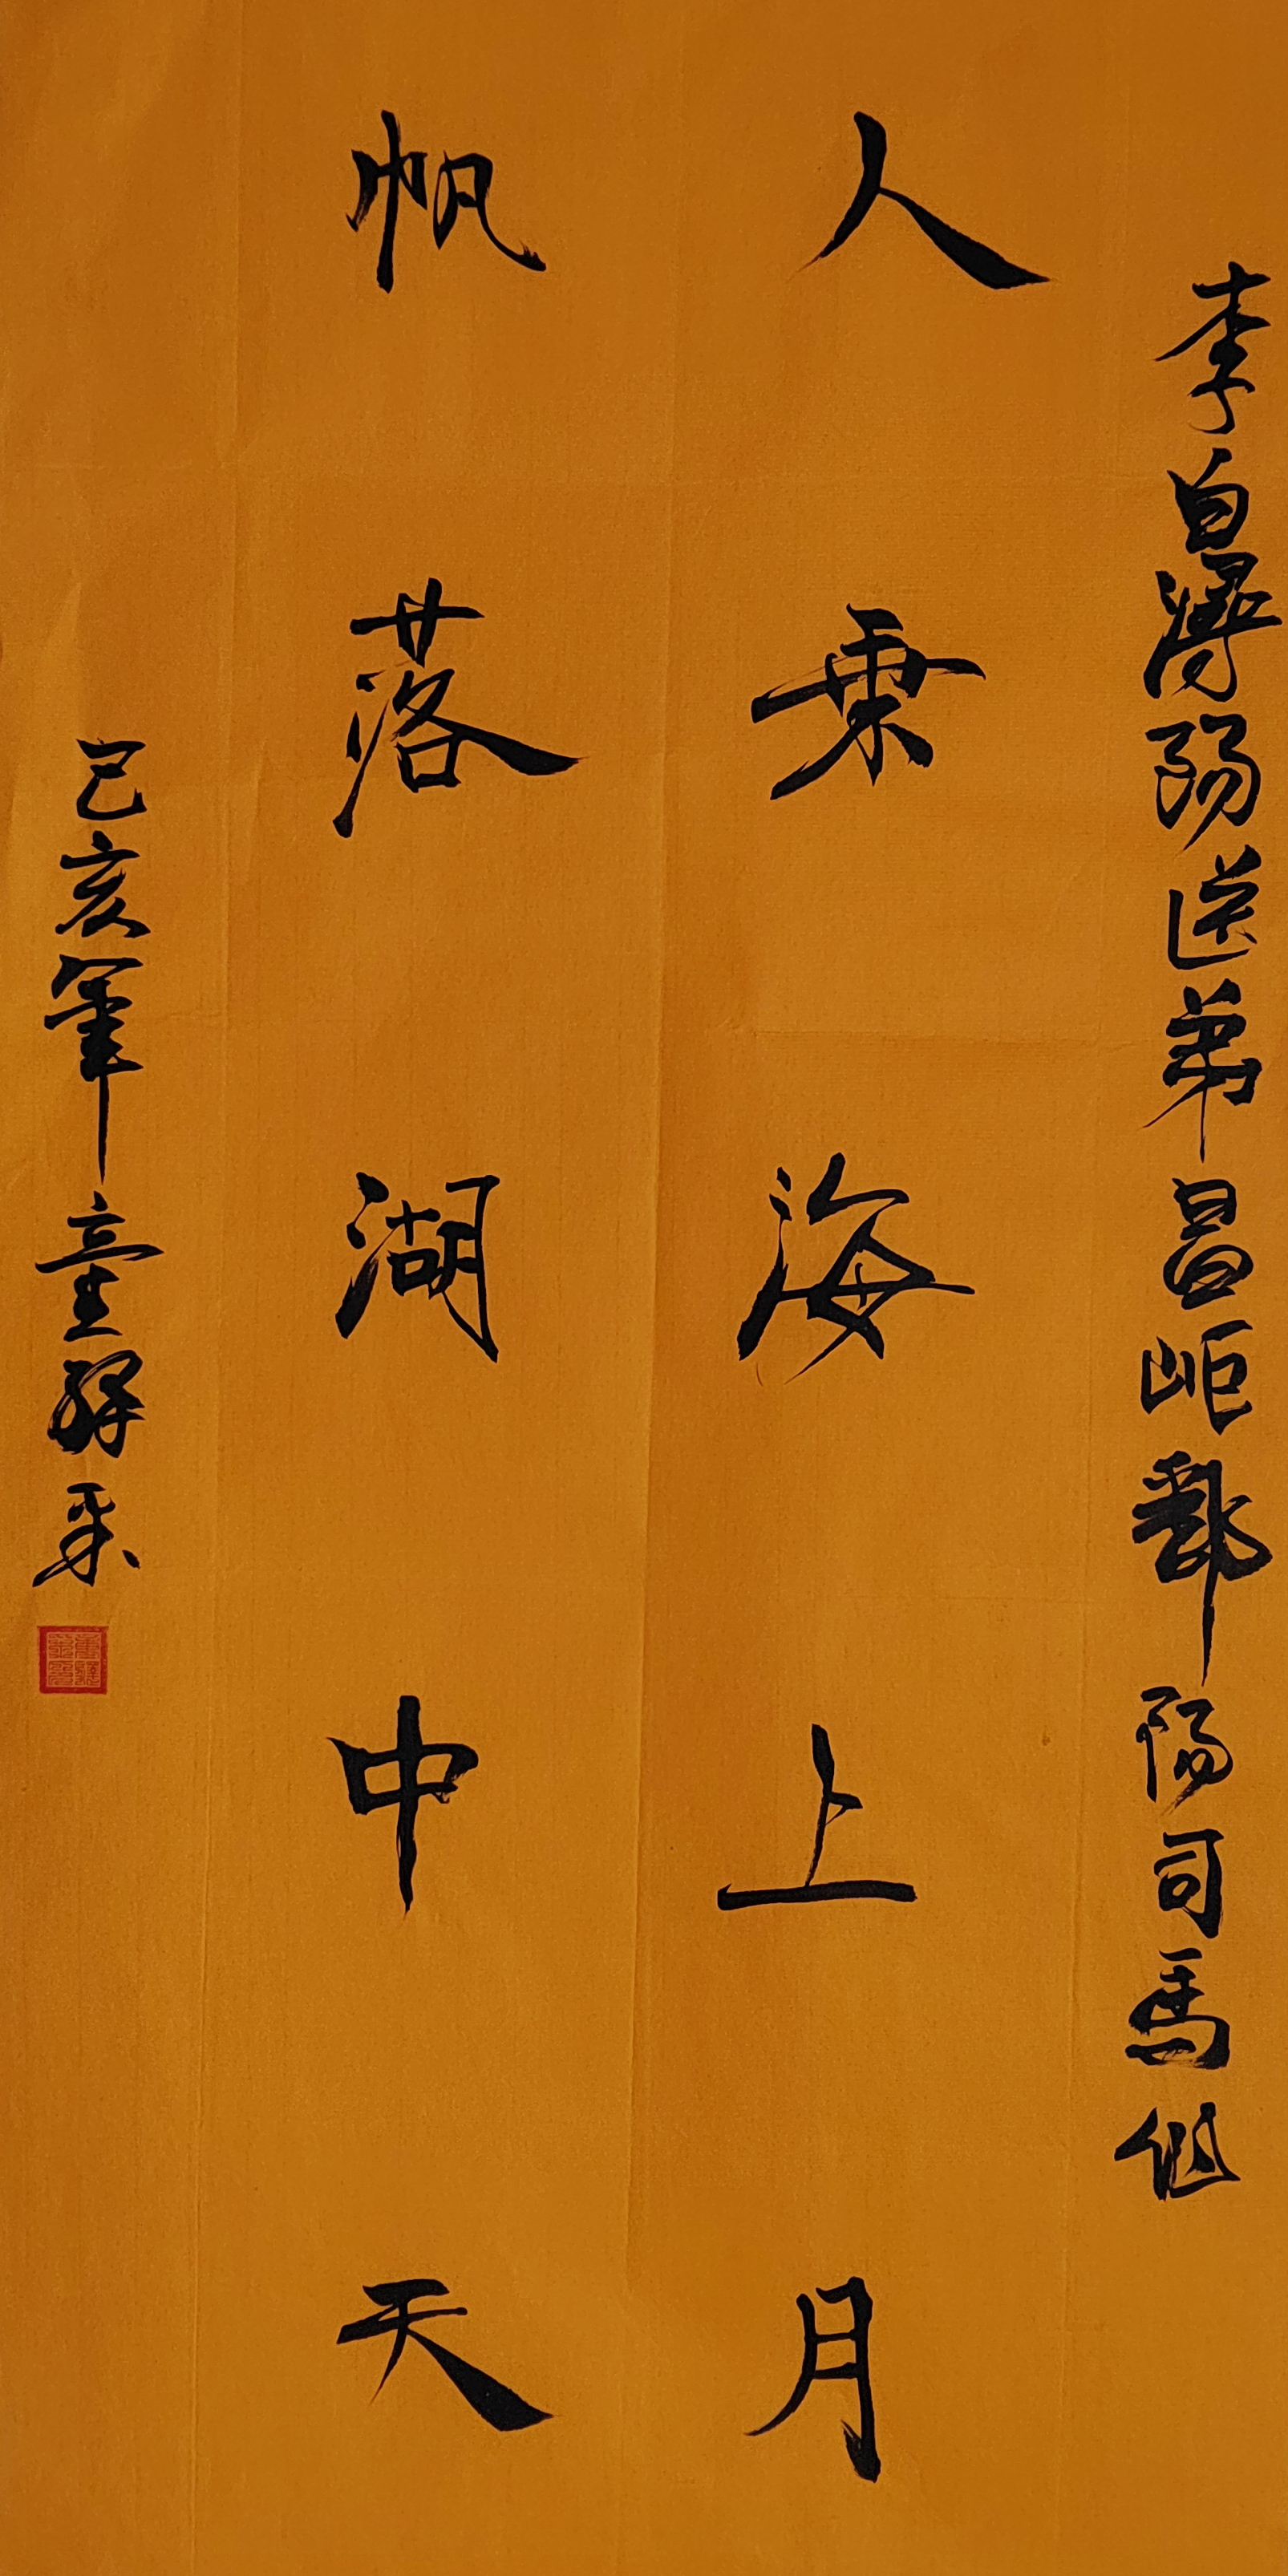 李白潯陽送弟昌岠鄱陽司馬作
人乘海上月
帆落湖中天
己亥年童釋采